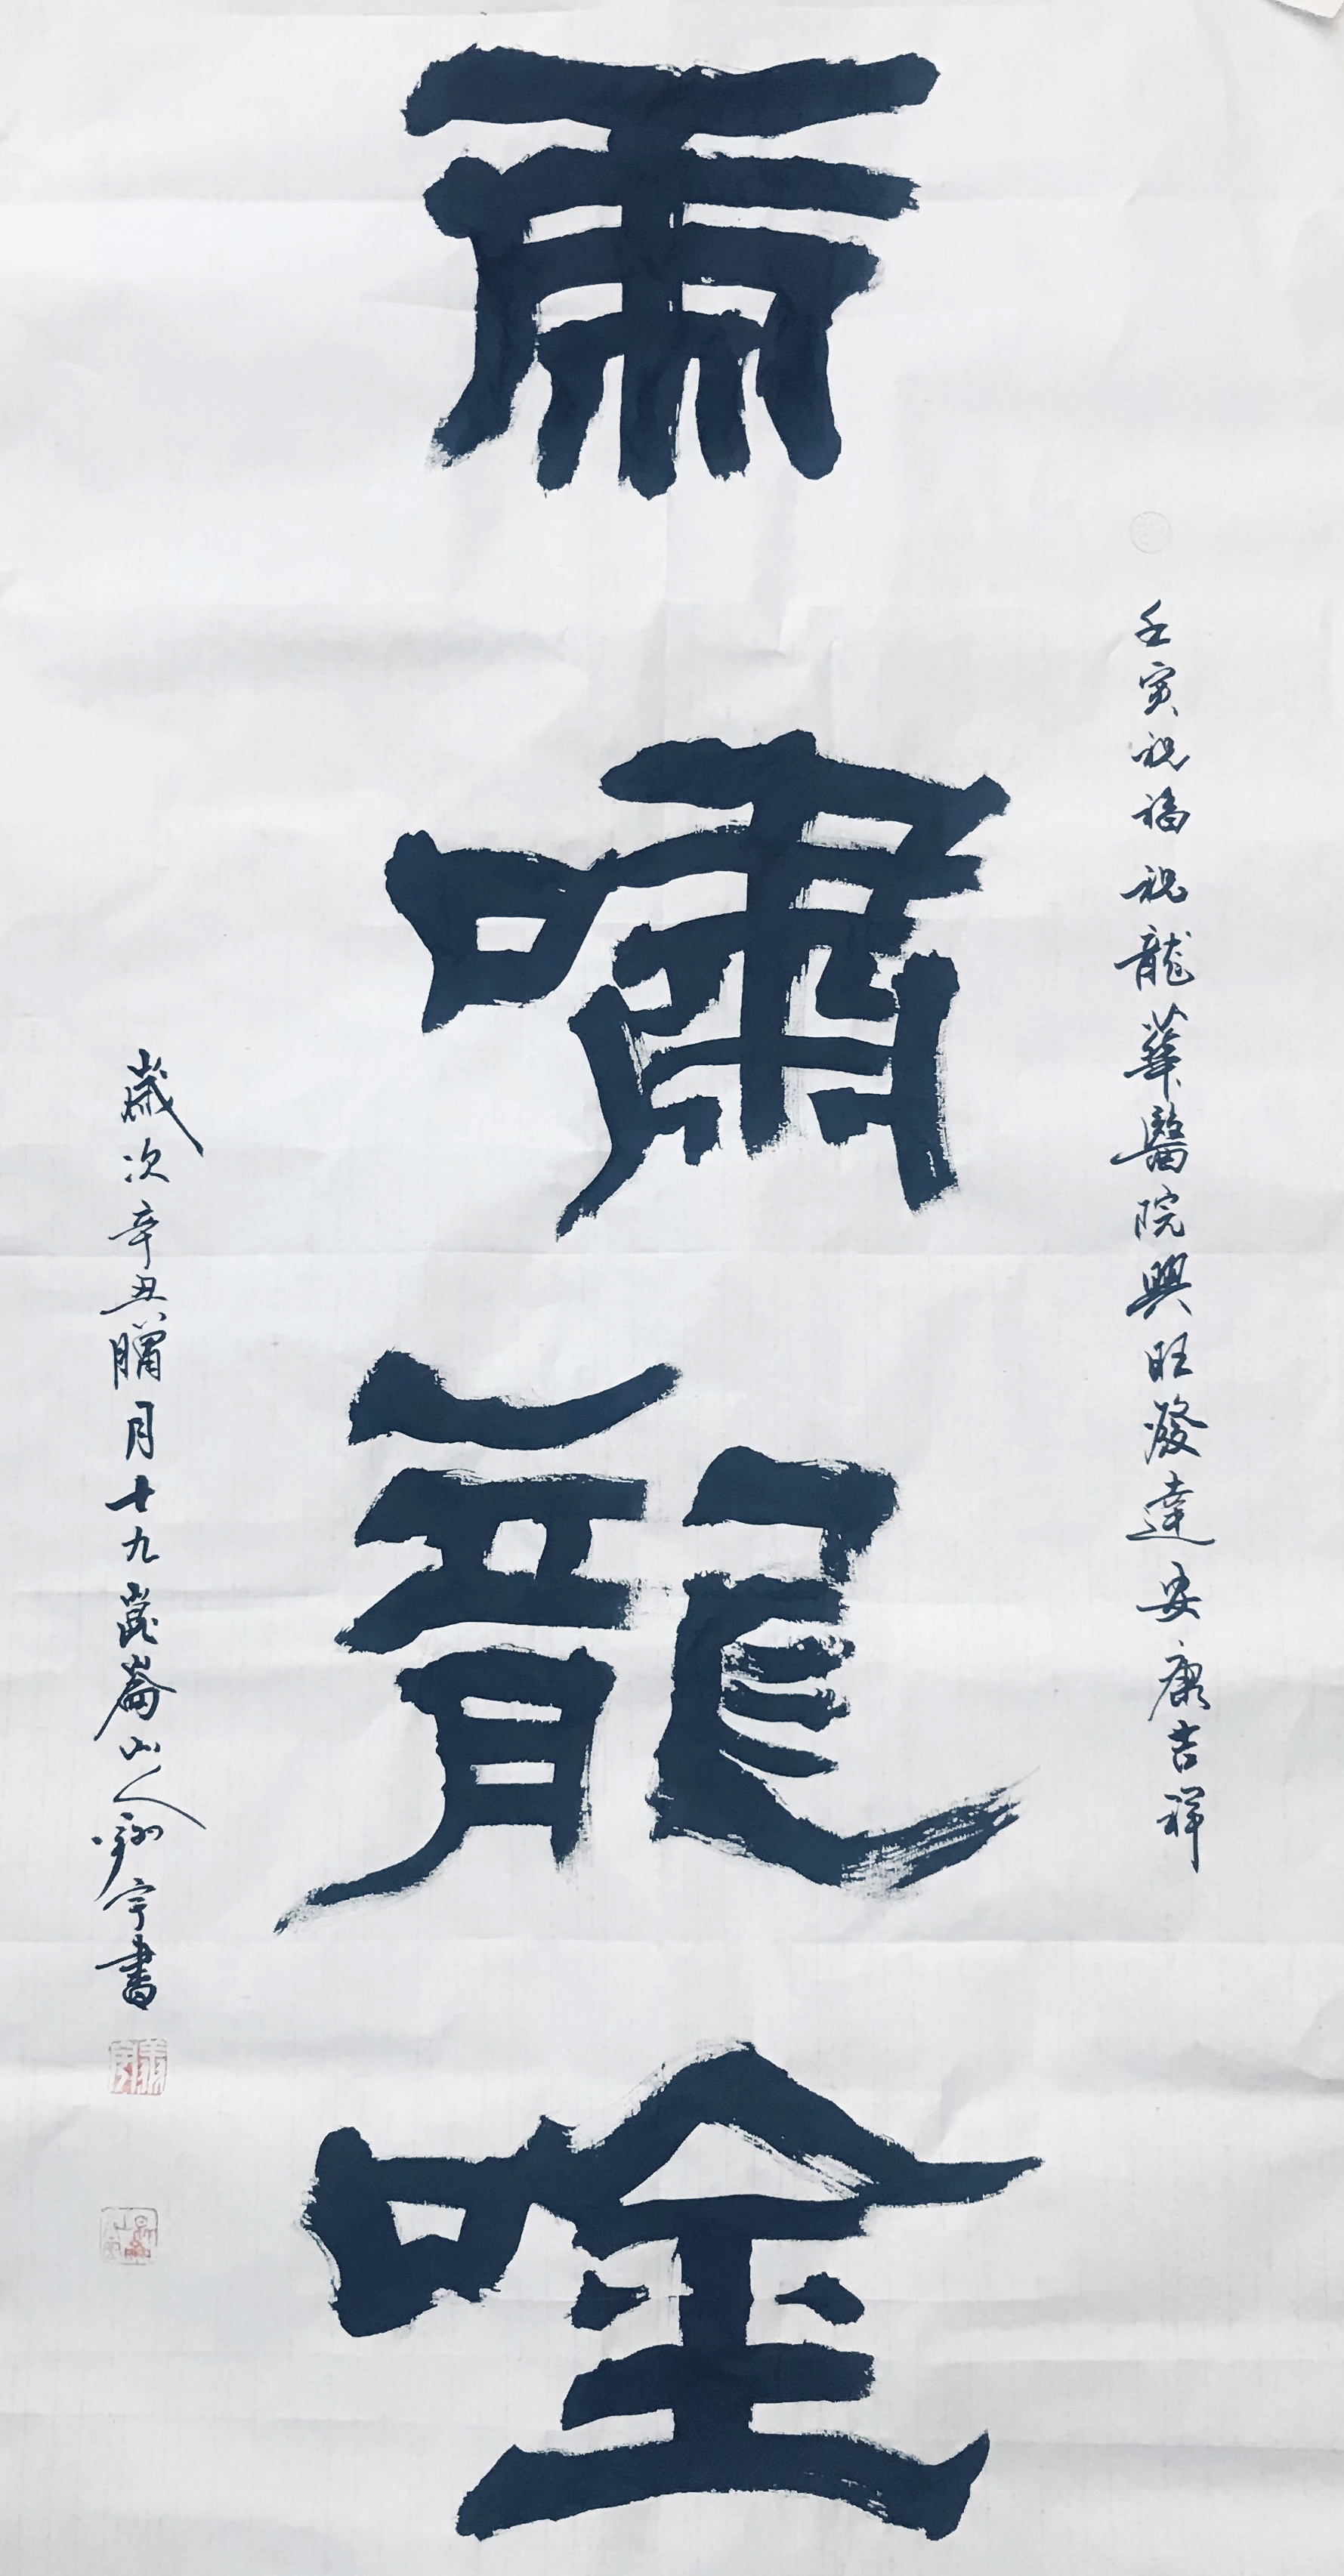 壬寅祝福祝龍華醫院興旺發達安康吉祥
虎嘯龍唫
歲次辛丑臘月十九崑崙山人宇書